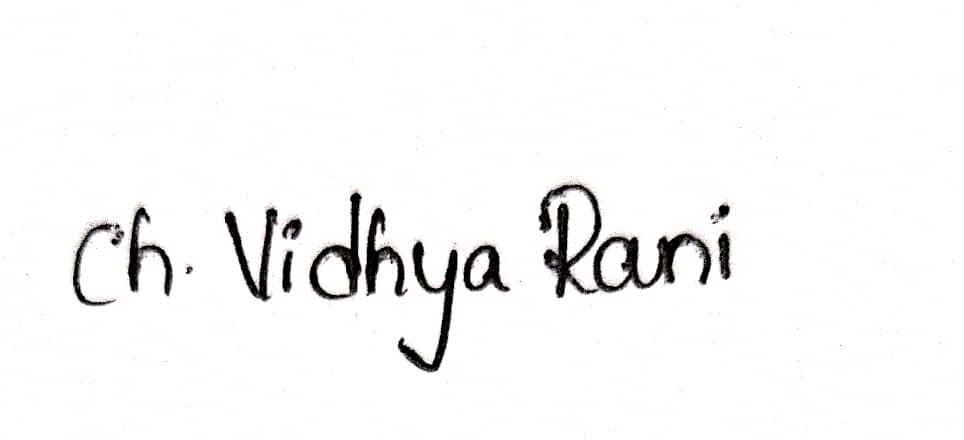 Ch. Vidhya Rani